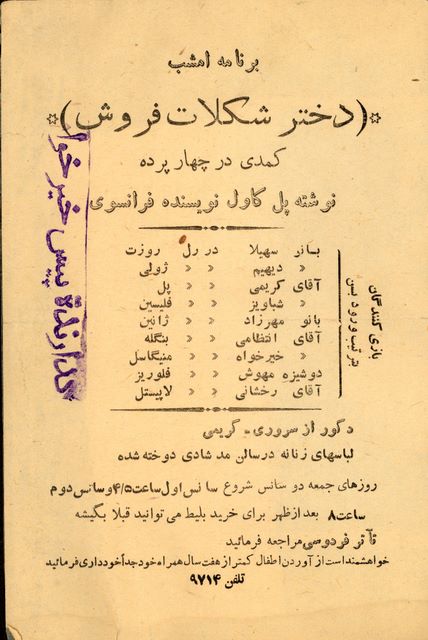 برنامه امشب
(دختر شکلات فروش)
کمدی در چهار پرده
نوشته پل گاول نویسنده فرانسوی
بازی کنندگان
بترتیب ورود بسن
بانو سهیلا در رل روزت
» دیهیم » » ژولی
آقای کریمی » » پل
» شباویز » » فلیسین
بانو مهرزاد » » ژانین
آقای انتظامی » » بنگله
» خیرخواه » » منیگاسل
دوشیزه مهوش » » فلوریز
آقای رخشانی » » لاپیستل
دکور از سروری - گریمی
لباسهای زنانه در سالن مد شادی دوخته شده
روزهای جمعه دو سانس شروع سانس اول ساعت ۴/۵ و سانس دوم
ساعت ۸ بعد از ظهر برای خرید بلیط می توانید قبلا بگیشه
تآتر فردوسی مراجعه فرمائید
خواهشمند است از آوردن اطفال کمتر از هفت سال همراه خود جداً خودداری فرمائید
تلفن ۹۷۱۴
دارنده پیس خیرخواه